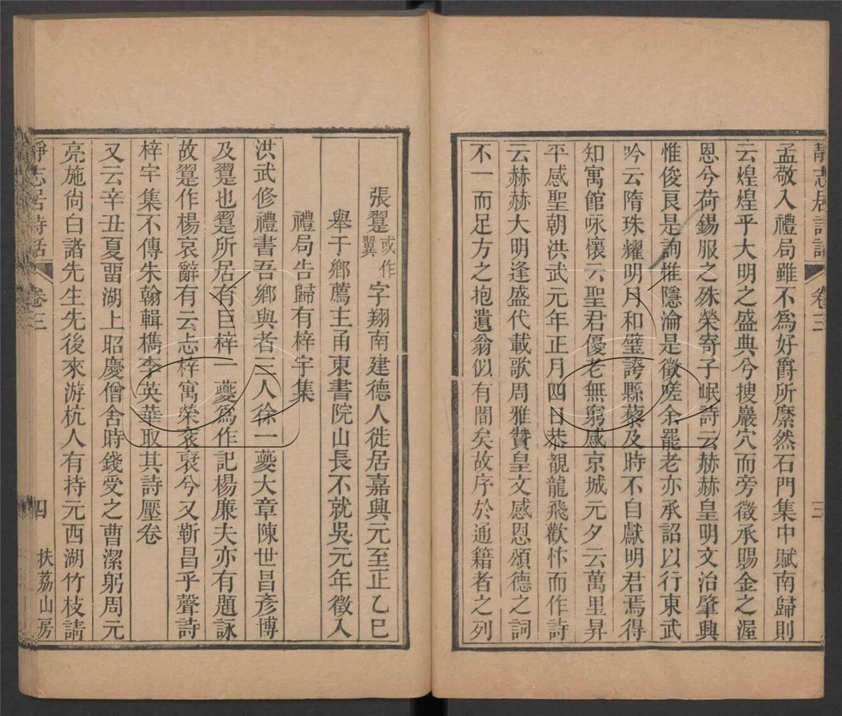 靜志居詩話 卷三 三
孟敬入禮局雖不爲好爵所縻然石門集中賦南歸則
云煌煌乎大明之盛典兮搜巖穴而旁徵承賜金之渥
恩兮荷錫服之殊榮寄子岷詩云赫赫皇明文治肇興
惟俊良是詢惟隱淪是徵嗟余罷老亦承詔以行東武
吟云隋珠耀明月和璧誇縣藜及時不自獻明君焉得
知寓館咏懷云聖君優老無窮感京城元夕云萬里昇
平感聖朝洪武元年正月四日恭覩龍飛歡忭而作詩
云赫赫大明逢盛代載歌周雅贊皇文感恩頌德之詞
不一而足方之抱遺翁似有間矣故序於通籍者之列
張翨或作翼字翔南建德人徙居嘉興元至正乙巳
舉于鄉薦主甬東書院山長不就吳元年徵入
禮局告歸有梓宇集
洪武修禮書吾鄉與者三人徐一夔大章陳世昌彥博
及翨也翨所居有巨梓一夔爲作記楊廉夫亦有題詠
故翨作楊哀辭有云忐梓寓榮衮衮兮又靳昌乎聲詩
梓宇集不傳朱翰輯檇李英華取其詩壓卷
又云辛丑夏畱湖上昭慶僧舍時錢受之曹潔躬周元
亮施尙白諸先生先後來游杭人有持元西湖竹枝請
靜志居詩話 卷三 四 扶荔山房